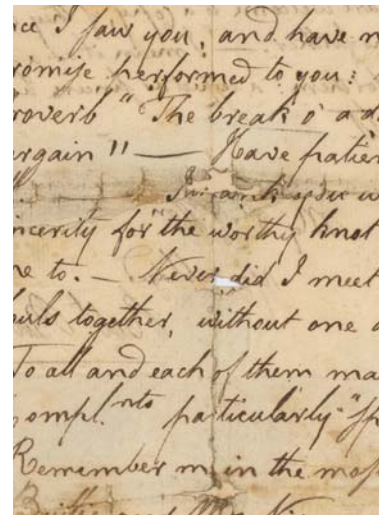 ce I saw you, and have n
romise performed to you:
roverb " The break o' a d
rgain " — Have patien
thank you w
incerity for the worthy knot
me to. — Never did I meet
together, without one
To all and each of them ma
ompl.nts particularly "sp
Remember me in the mos